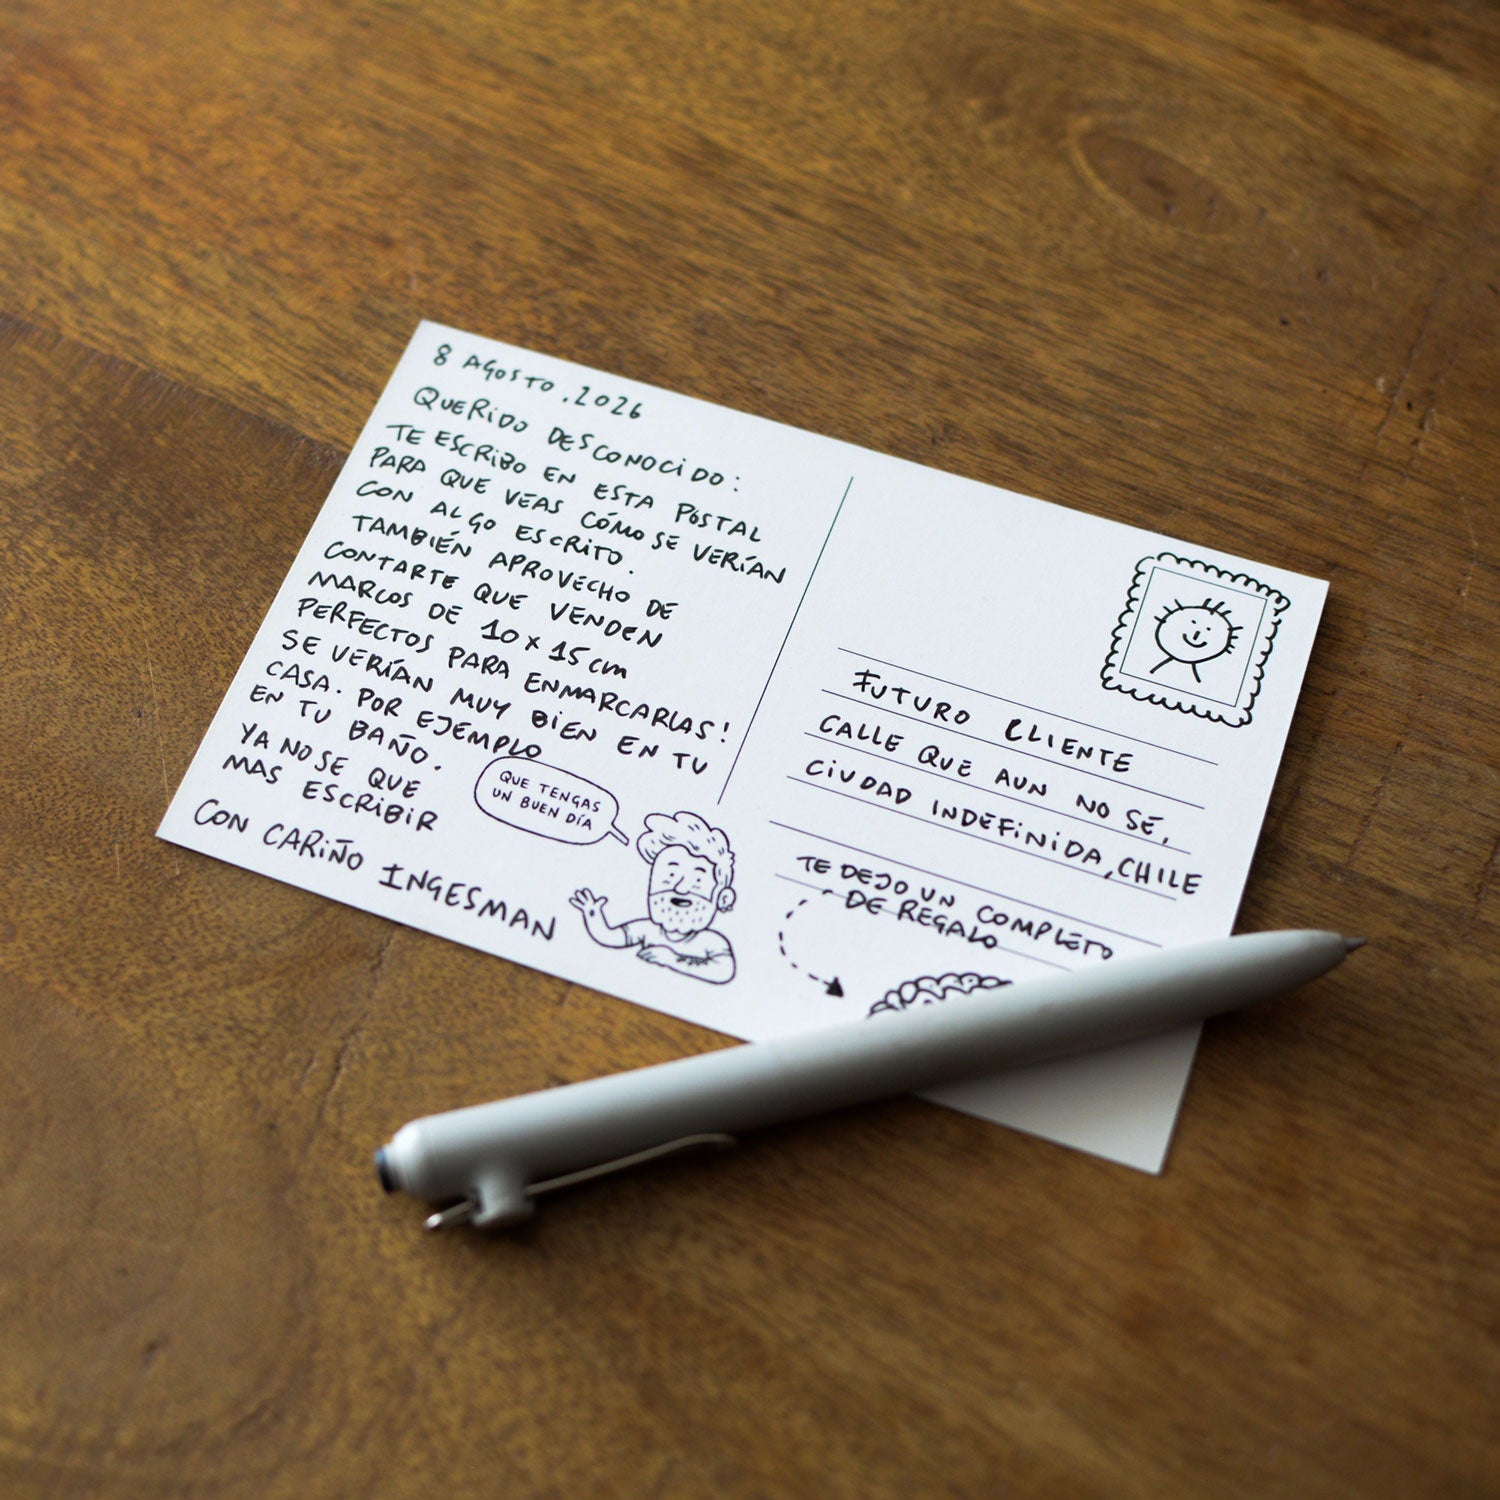 8 AGOSTO, 2026
QUERIDO DESCONOCIDO:
TE ESCRIBO EN ESTA POSTAL
PARA QUE VEAS CÓMO SE VERÍAN
CON ALGO ESCRITO.
TAMBIÉN APROVECHO DE
CONTARTE QUE VENDEN
MARCOS DE 10 x 15 cm
PERFECTOS PARA ENMARCARLAS!
SE VERÍAN MUY BIEN EN TU
CASA. POR EJEMPLO
EN TU BAÑO.
YA NO SE QUE
MAS ESCRIBIR
CON CARIÑO INGESMAN
QUE TENGAS
UN BUEN DÍA
FUTURO CLIENTE
CALLE QUE AUN NO SÉ,
CIUDAD INDEFINIDA, CHILE
TE DEJO UN COMPLETO
DE REGALO